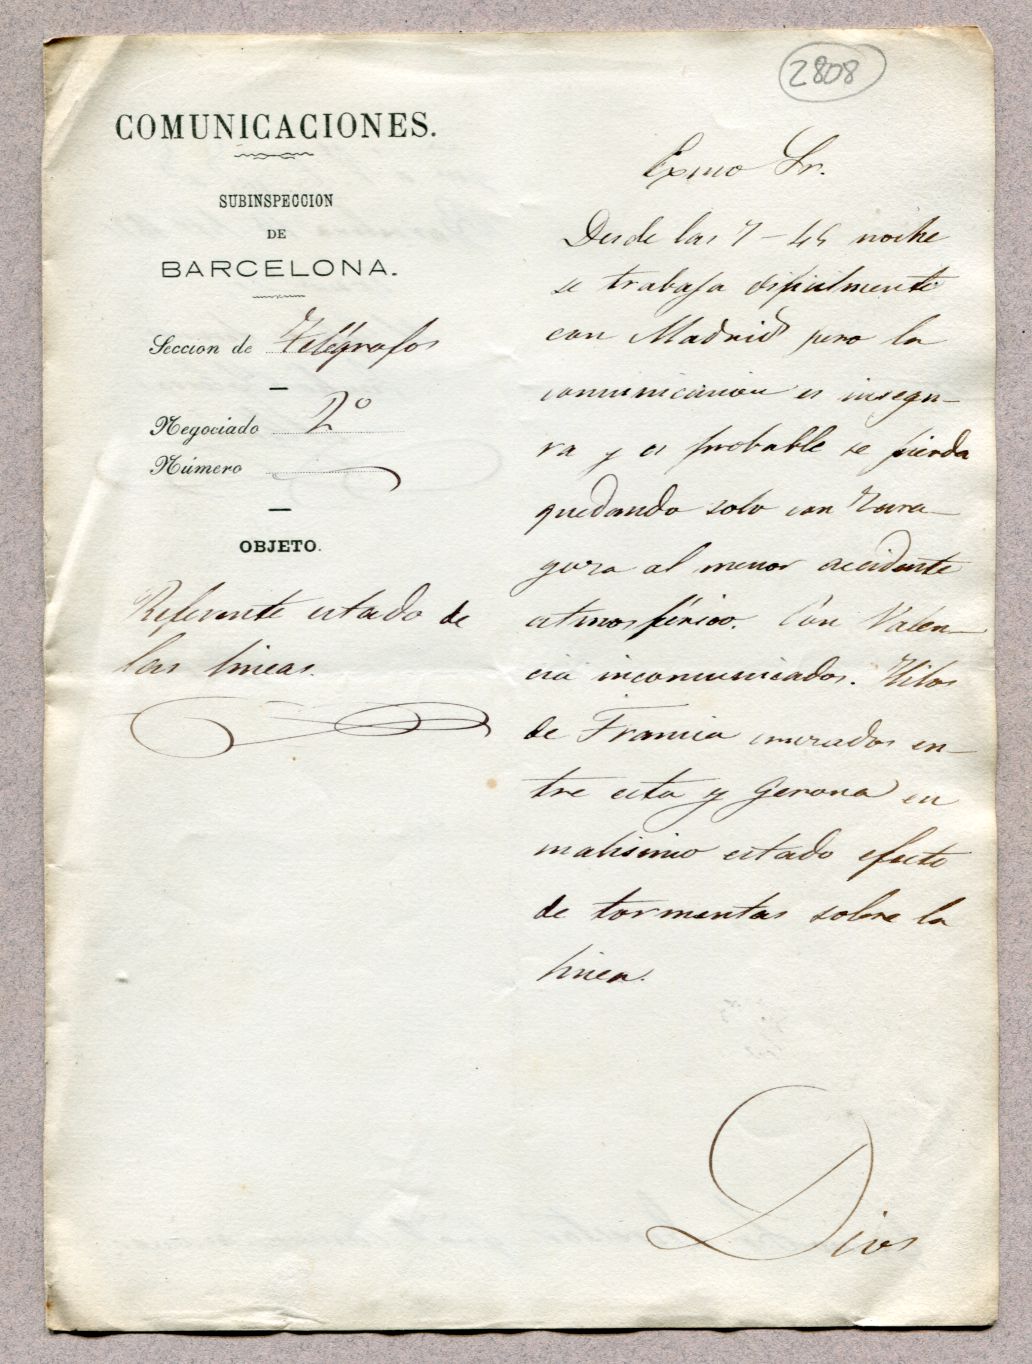 2808
COMUNICACIONES.
SUBINSPECCION
DE
BARCELONA.
Seccion de Telégrafos
Negociado 2º
Número
OBJETO.
Referente estado de
las lineas.
Exmo Sr.
Desde las 7-45 noche
se trabaja dificilmente
con Madrid pero la
comunicacion es insegu-
ra y es probable se pierda
quedando solo con Zara-
goza al menor accidente
atmosférico. Con Valen-
cia incomunicados. Hilos
de Francia cruzados en-
tre esta y Gerona en
malisimo estado efecto
de tormentas sobre la
linea.
Dios